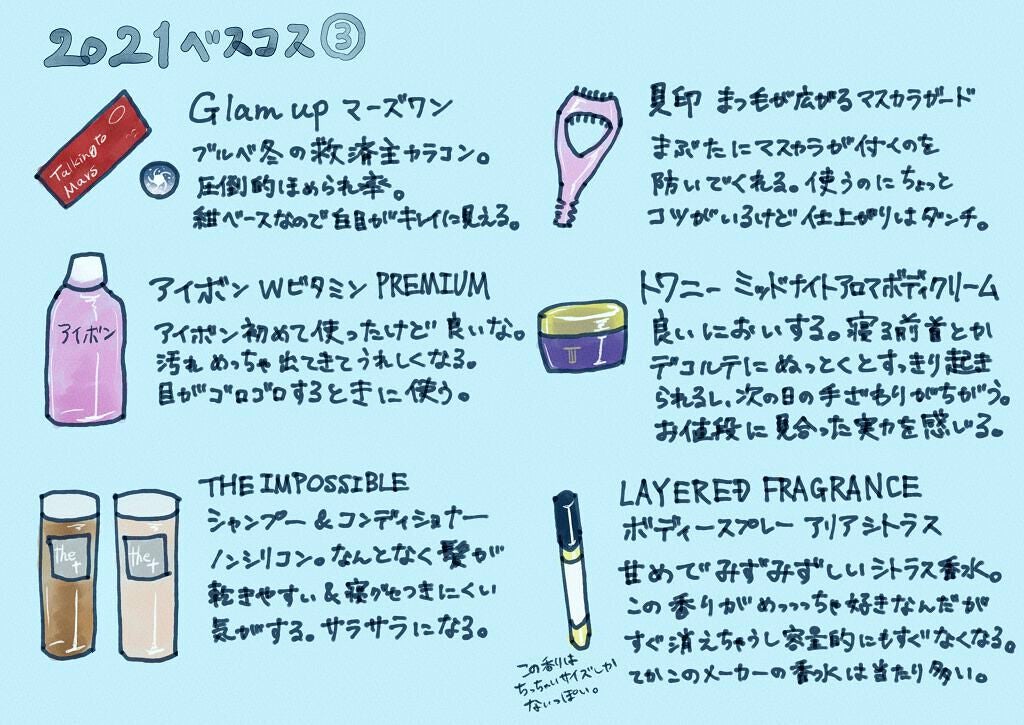 2021ベスコス③
Talking to
Mars
Glam up マーズワン
ブルベ冬の救済主カラコン。
圧倒的ほめられ率。
紺ベースなので白目がキレイに見える。
貝印 まつ毛が広がるマスカラガード
まぶたにマスカラが付くのを
防いでくれる。使うのにちょっと
コツがいるけど仕上がりはダンチ。
アイボン
アイボン Wビタミン PREMIUM
アイボン初めて使ったけど良いな。
汚れめっちゃ出てきてうれしくなる。
目がゴロゴロするときに使う。
T
トワニー ミッドナイトアロマボディクリーム
良いにおいする。寝る前首とか
デコルテにぬっとくとすっきり起き
られるし、次の日の手ざわりがちがう。
お値段に見合った実力を感じる。
the
+
the
+
THE IMPOSSIBLE
シャンプー&コンディショナー
ノンシリコン。なんとなく髪が
乾きやすい&寝グセつきにくい
気がする。サラサラになる。
LAYERED FRAGRANCE
ボディースプレー アリアシトラス
甘めでみずみずしいシトラス香水。
この香りがめっっっちゃ好きなんだが
すぐ消えちゃうし容量的にもすぐなくなる。
てかこのメーカーの香水は当たり多い。
この香りは
ちっちゃいサイズしか
ないっぽい。